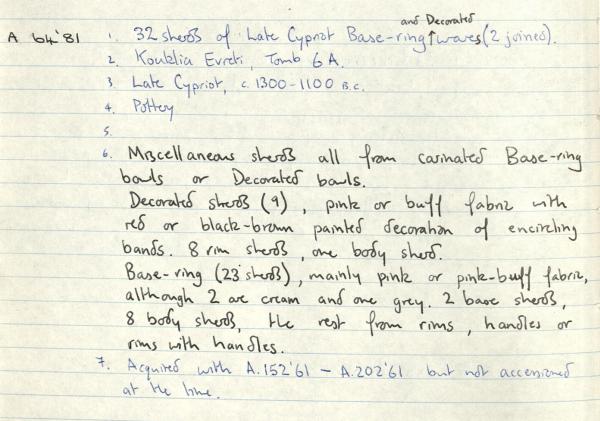 A 64'81 1. 32 sherds of Late Cypriot Base-ring and Decorated ↑ wares (2 joined).
2. Kouklia Evreti, Tomb 6A.
3. Late Cypriot, c. 1300-1100 B.C.
4. Pottery
5.
6. Miscellaneous sherds all from carinated Base-ring
bowls or Decorated bowls.
Decorated sherds (9), pink or buff fabric with
red or black-brown painted decoration of encircling
bands. 8 rim sherds, one body sherd.
Base-ring (23 sherds), mainly pink or pink-buff fabric,
although 2 are cream and one grey. 2 base sherds,
8 body sherds, the rest from rims, handles or
rims with handles.
7. Acquired with A.152'61 - A.202'61 but not accessioned
at the time.